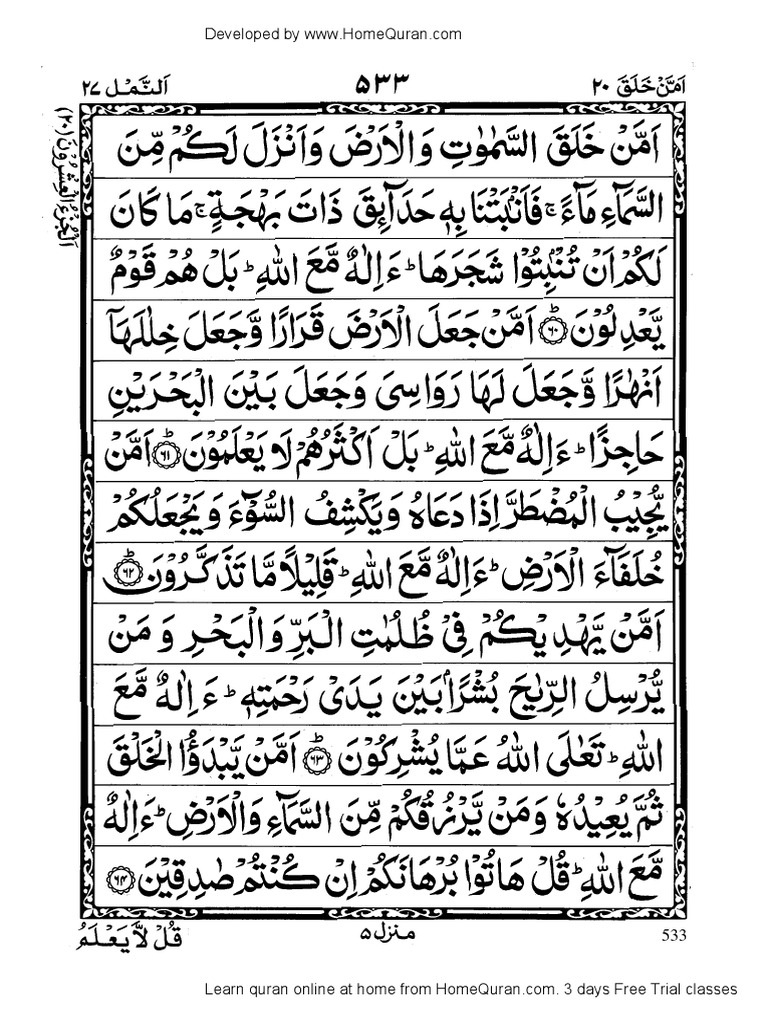 Developed by www.HomeQuran.com
اَمَّنْ خَلَقَ ۲۰
۵۳۳
اَلنَّمْل ۲۷
اَلْجُزْءُ الْعِشْرُوْنَ (۲۰)
اَمَّنْ خَلَقَ السَّمٰوٰتِ وَالْاَرْضَ وَاَنْزَلَ لَكُمْ مِّنَ
السَّمَآءِ مَآءً ۚ فَاَنْۢبَتْنَا بِهٖ حَدَآئِقَ ذَاتَ بَهْجَةٍ ۚ مَا كَانَ
لَكُمْ اَنْ تُنْۢبِتُوْا شَجَرَهَا ؕ ءَاِلٰهٌ مَّعَ اللّٰهِ ؕ بَلْ هُمْ قَوْمٌ
يَّعْدِلُوْنَ ؕ‏﴿۶۰﴾ اَمَّنْ جَعَلَ الْاَرْضَ قَرَارًا وَّجَعَلَ خِلٰلَهَاۤ
اَنْهٰرًا وَّجَعَلَ لَهَا رَوَاسِىَ وَجَعَلَ بَيْنَ الْبَحْرَيْنِ
حَاجِزًا ؕ ءَاِلٰهٌ مَّعَ اللّٰهِ ؕ بَلْ اَكْثَرُهُمْ لَا يَعْلَمُوْنَ ؕ‏﴿۶۱﴾ اَمَّنْ
يُّجِيْبُ الْمُضْطَرَّ اِذَا دَعَاهُ وَيَكْشِفُ السُّوْٓءَ وَيَجْعَلُكُمْ
خُلَفَآءَ الْاَرْضِ ؕ ءَاِلٰهٌ مَّعَ اللّٰهِ ؕ قَلِيْلًا مَّا تَذَكَّرُوْنَ ؕ‏﴿۶۲﴾
اَمَّنْ يَّهْدِيْكُمْ فِىْ ظُلُمٰتِ الْبَرِّ وَالْبَحْرِ وَ مَنْ
يُّرْسِلُ الرِّيٰحَ بُشْرًۢا بَيْنَ يَدَىْ رَحْمَتِهٖ ؕ ءَاِلٰهٌ مَّعَ
اللّٰهِ ؕ تَعٰلَى اللّٰهُ عَمَّا يُشْرِكُوْنَ ؕ‏﴿۶۳﴾ اَمَّنْ يَّبْدَؤُا الْخَلْقَ
ثُمَّ يُعِيْدُهٗ وَمَنْ يَّرْزُقُكُمْ مِّنَ السَّمَآءِ وَالْاَرْضِ ؕ ءَاِلٰهٌ
مَّعَ اللّٰهِ ؕ قُلْ هَاتُوْا بُرْهَانَكُمْ اِنْ كُنْتُمْ صٰدِقِيْنَ ﴿۶۴﴾
533
منزل ۵
قُلْ لَّا يَعْلَمُ
Learn quran online at home from HomeQuran.com. 3 days Free Trial classes